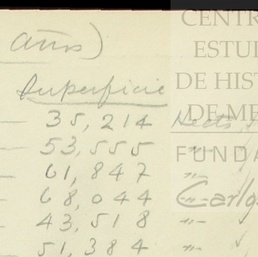 años)
Superficie
— 35,214 Hects
— 53,555 "
— 61,847 "
— 68,044 "
— 43,518 "
51,384 "
CENTR
ESTUI
DE HIST
DE ME
FUNDA
Carlos